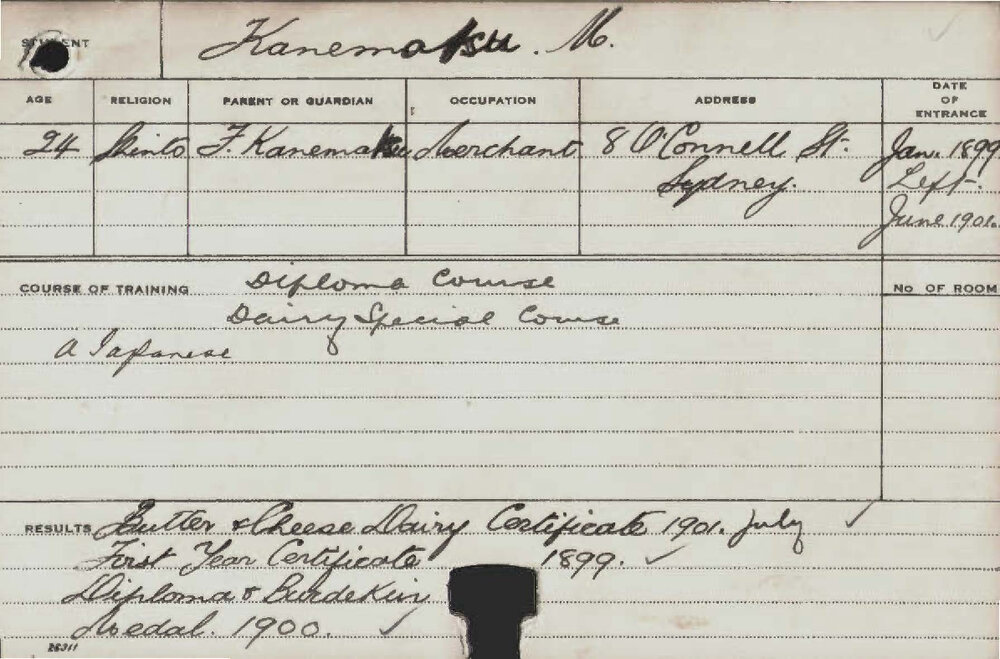 STUDENT Kanematsu. M.
AGE RELIGION PARENT OR GUARDIAN OCCUPATION ADDRESS DATE OF ENTRANCE
24 Shinto F. Kanematsu Merchant 8 O'Connell St. Jan. 1899
Sydney. Left
June 1901.
COURSE OF TRAINING Diploma Course No OF ROOM
Dairy Special Course
A Japanese
RESULTS Butter & Cheese Dairy Certificate 1901. July
First Year Certificate 1899.
Diploma & Burdekin
Medal. 1900.
26311